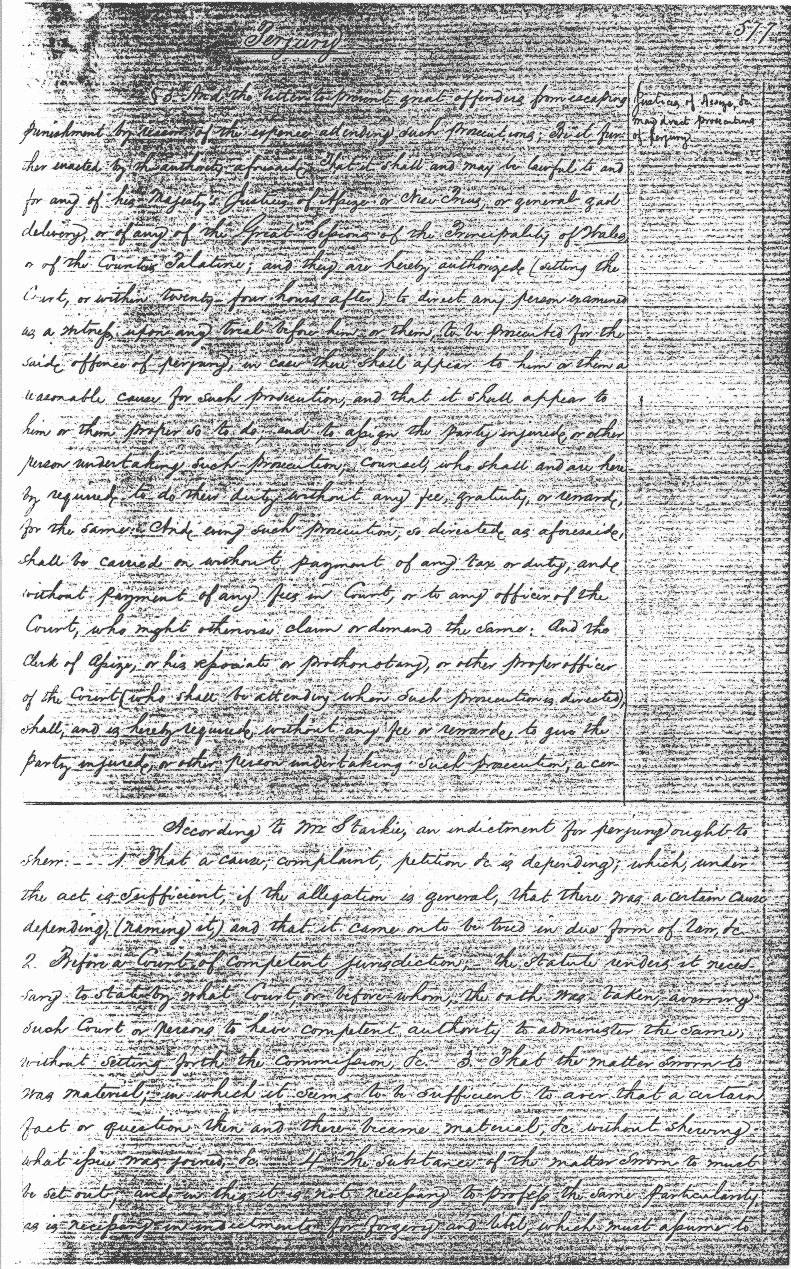 Perjury
577
§ 3. And the better to prevent great offenders from escaping
punishment by reason of the expence attending such prosecutions; Be it fur-
ther enacted by the authority aforesaid, That it shall and may be lawful to and
for any of his Majesty's Justices of Assize or Nisi Prius, or general gaol
delivery, or of any of the Great Sessions of the Principality of Wales,
or of the Counties Palatine; and they are hereby authorized, (sitting the
Court, or within twenty-four hours after) to direct any person examined
as a witness upon any trial before him or them, to be prosecuted for the
said offence of perjury, in case there shall appear to him or them a
reasonable cause for such prosecution, and that it shall appear to
him or them proper so to do, and to assign the party injured, or other
person undertaking such prosecution, counsel, who shall and are here-
by required to do their duty without any fee, gratuity, or reward,
for the same: And every such prosecution, so directed as aforesaid,
shall be carried on without payment of any tax or duty, and
without payment of any fees in Court, or to any officer of the
Court, who might otherwise claim or demand the same: And the
Clerk of Assize, or his associate or prothonotary, or other proper officer
of the Court (who shall be attending when such prosecution is directed),
shall, and is hereby required, without any fee or reward, to give the
party injured, or other person undertaking such prosecution, a cer-
Justices of Assize, &c.
may direct prosecutions
of perjury
According to Mr Starkie, an indictment for perjury ought to
shew: - 1. That a cause, complaint, petition &c. is depending; which, under
the act is sufficient, if the allegation is general, that there was a certain cause
depending, (naming it,) and that it came on to be tried in due form of law, &c.
2. Before a Court of competent jurisdiction; the statute renders it neces-
sary to state by what Court, or before whom, the oath was taken, averring
such Court or persons to have competent authority to administer the same,
without setting forth the commission, &c. 3. That the matter sworn to
was material; in which it seems to be sufficient to aver that a certain
fact or question then and there became material, &c. without shewing
what issue was joined, &c. 4. The substance of the matter sworn to must
be set out; and in this it is not necessary to profess the same particularity,
as is necessary in indictments for forgery and libel, which must assume to